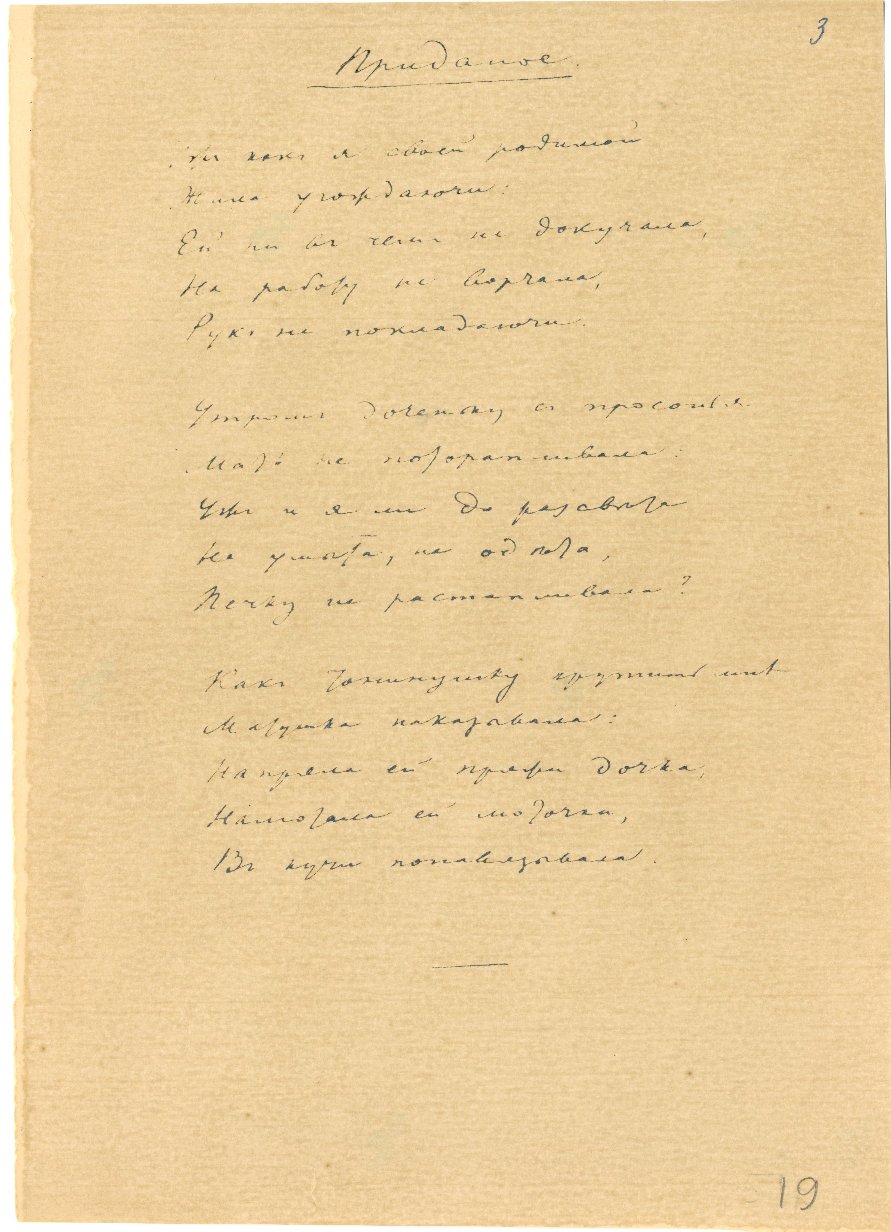 3
Приданое.
Ужъ какъ я своей родимой
Жила угождаючи:
Ей ни въ чемъ не докучала,
На работу не ворчала,
Рукъ не покладаючи.
Утромъ доченьку съ просонья
Мать не поторапливала:
Ужъ и я ли до разсвѣта
Не умыта, не одѣта,
Печку не растапливала?
Какъ кручинушку мнѣ
Матушка наказывала:
Напряла ей пряжи дочка,
Намотала ей моточки,
Въ кучи понавязывала.
19